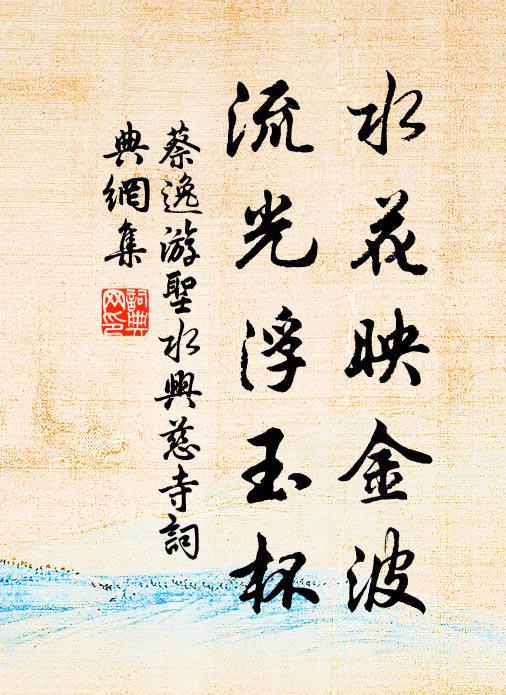 水花映金波
流光浮玉杯
蔡逸游聖水興慈寺詞
典網集
詞典
网印